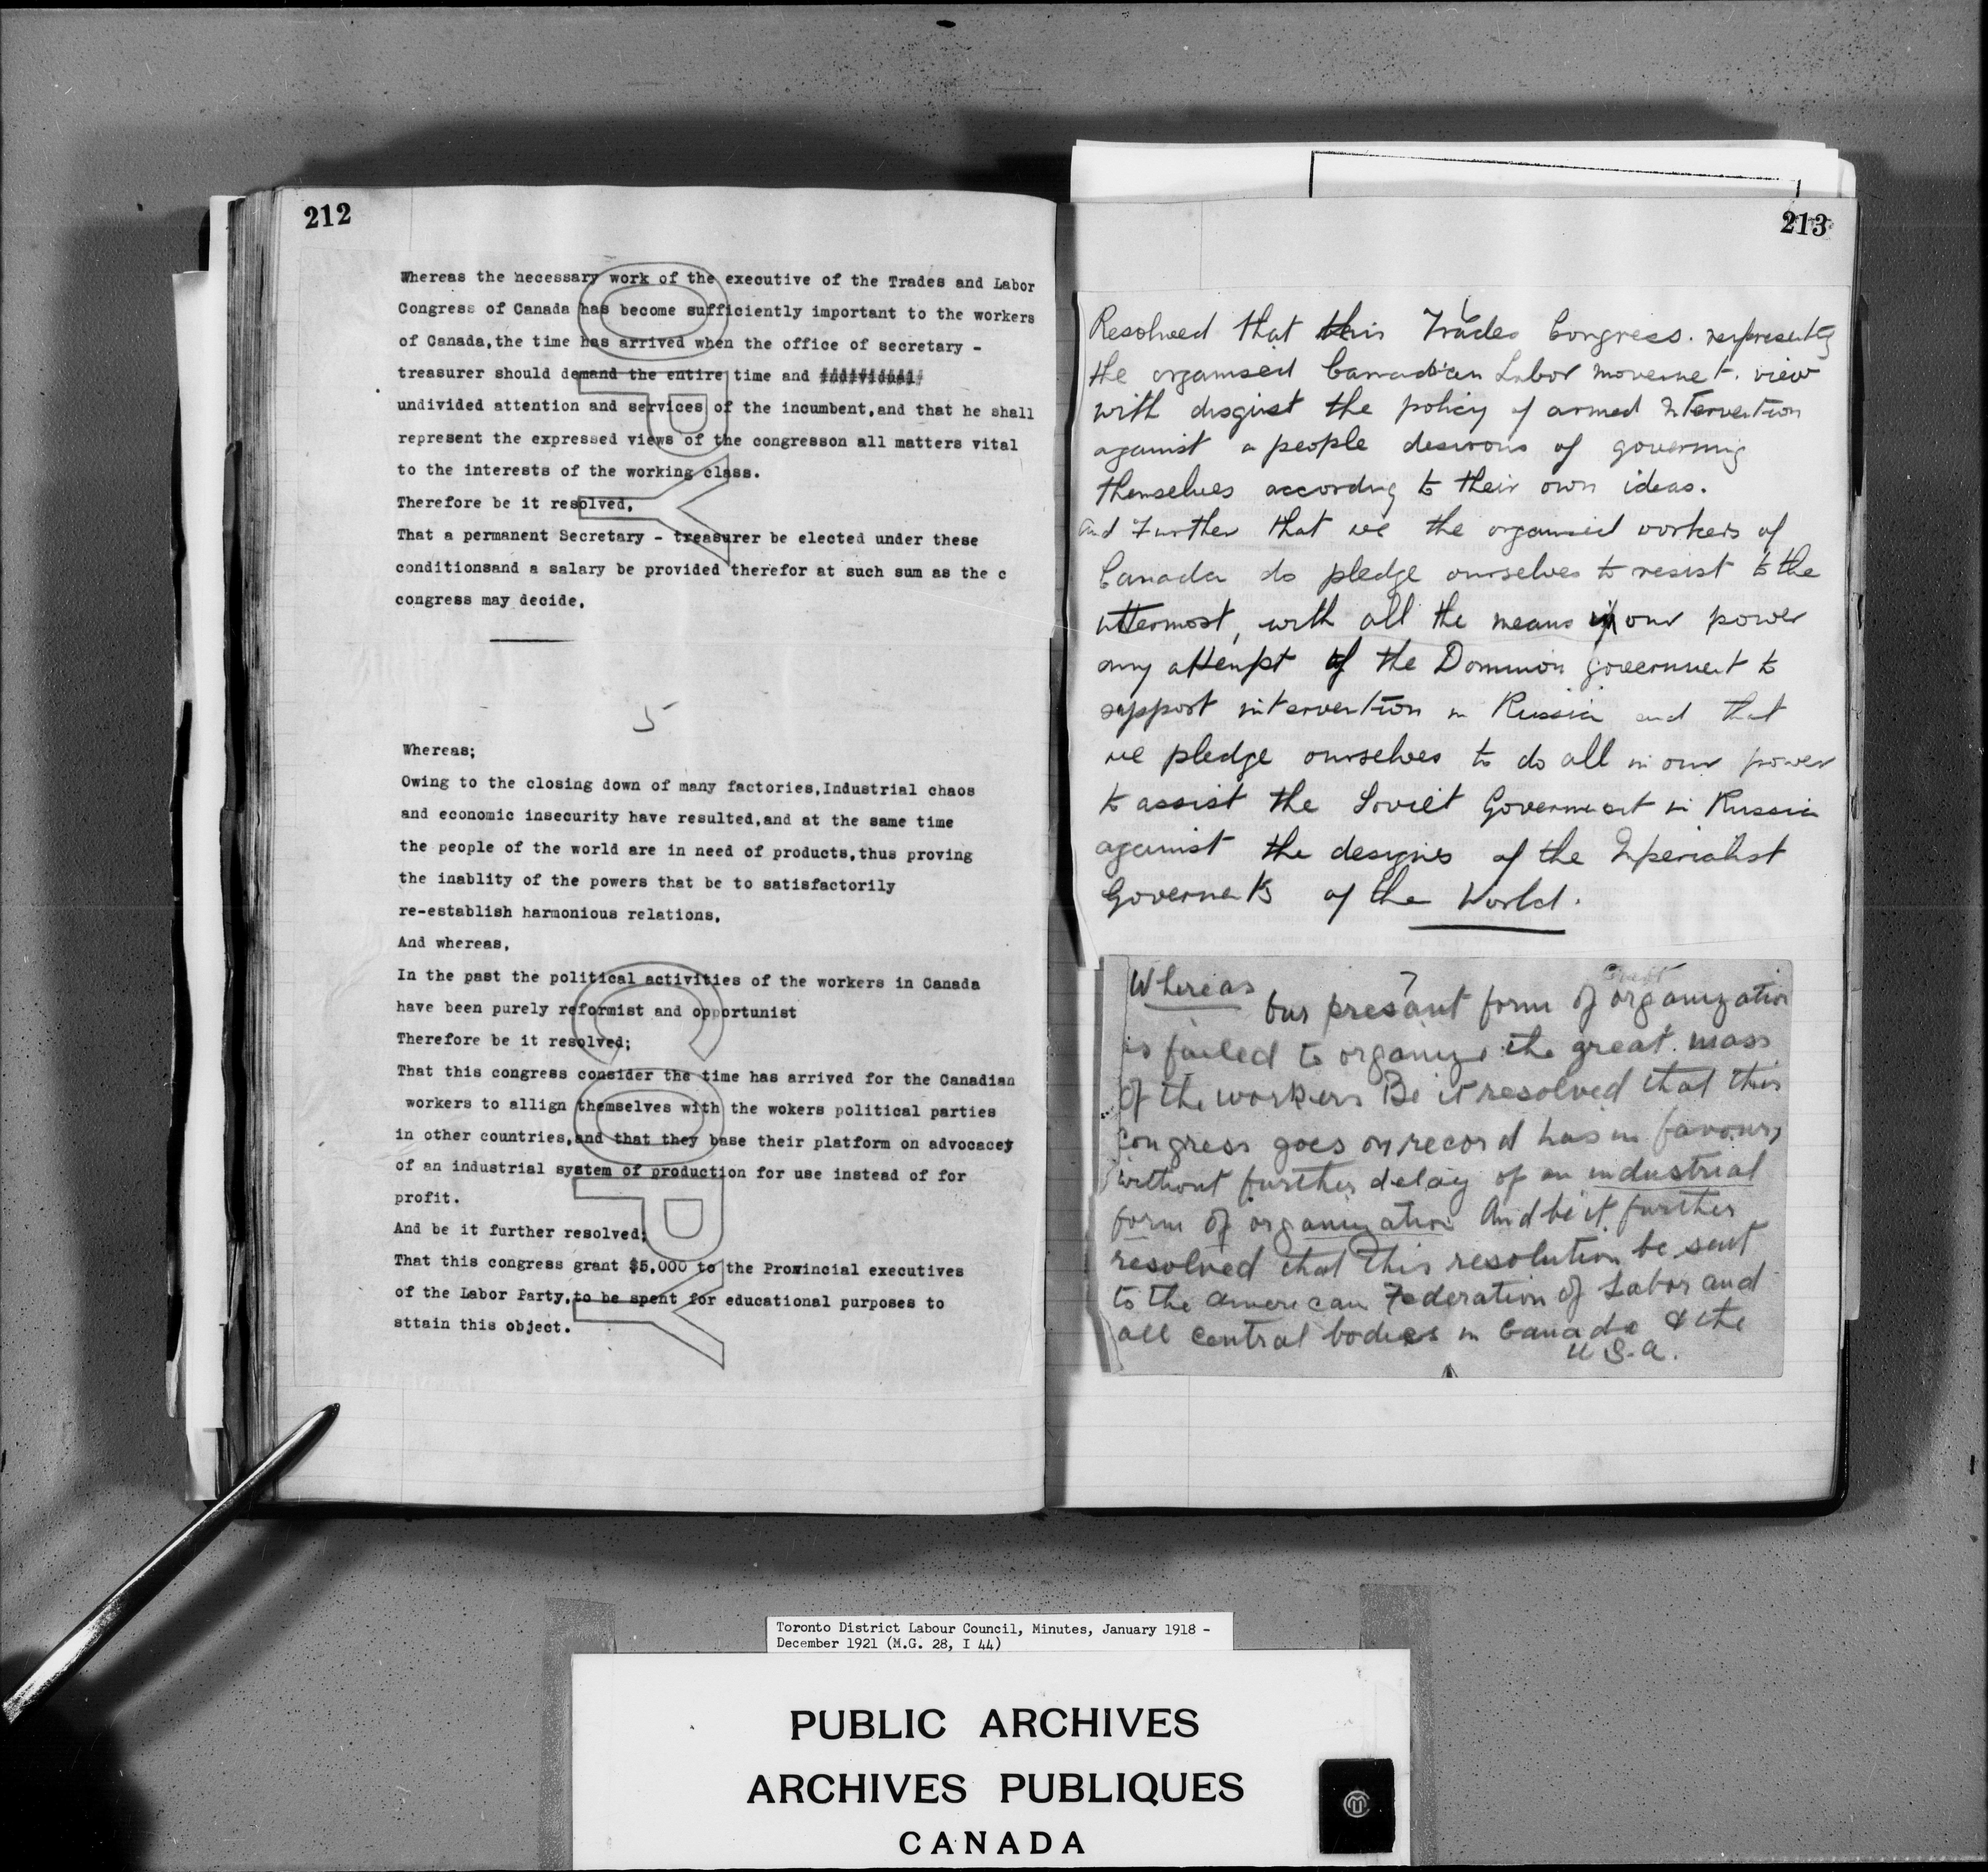 212
Whereas the necessary work of the executive of the Trades and Labor
Congress of Canada has become sufficiently important to the workers
of Canada,the time has arrived when the office of secretary -
treasurer should demand the entire time and individual
undivided attention and services of the incumbent,and that he shall
represent the expressed views of the congresson all matters vital
to the interests of the working class.
Therefore be it resolved,
That a permanent Secretary - treasurer be elected under these
conditionsand a salary be provided therefor at such sum as the c
congress may decide,
5
Whereas;
Owing to the closing down of many factories,Industrial chaos
and economic insecurity have resulted,and at the same time
the people of the world are in need of products,thus proving
the inablity of the powers that be to satisfactorily
re-establish harmonious relations,
And whereas,
In the past the political activities of the workers in Canada
have been purely reformist and opportunist
Therefore be it resolved;
That this congress consider the time has arrived for the Canadian
workers to allign themselves with the wokers political parties
in other countries,and that they base their platform on advocacey
of an industrial system of production for use instead of for
profit.
And be it further resolved;
That this congress grant $5,000 to the Provincial executives
of the Labor Party,to be spent for educational purposes to
sttain this object.
COPY
213
Resolved that this Trades Congress. representing
the organised Canadian Labor movement. view
with disgust the policy of armed Intervention
against a people desirous of governing
themselves according to their own ideas.
And Further that we the organised workers of
Canada do pledge ourselves to resist to the
uttermost, with all the means in our power
any attempt of the Dominion Government to
support intervention in Russia and that
we pledge ourselves to do all in our power
to assist the Soviet Government in Russia
against the designs of the Imperialist
Governments of the World.
7
Whereas
Our presant form of Craft organization
is failed to organize the great mass
of the workers Be it resolved that this
Congress goes on record has in favour,
without further delay of an industrial
form of organization And be it further
resolved that this resolution be sent
to the American Federation of Labor and
all central bodies in Canada & the
U.S.A.
Toronto District Labour Council, Minutes, January 1918 -
December 1921 (M.G. 28, I 44)
PUBLIC ARCHIVES
ARCHIVES PUBLIQUES
CANADA